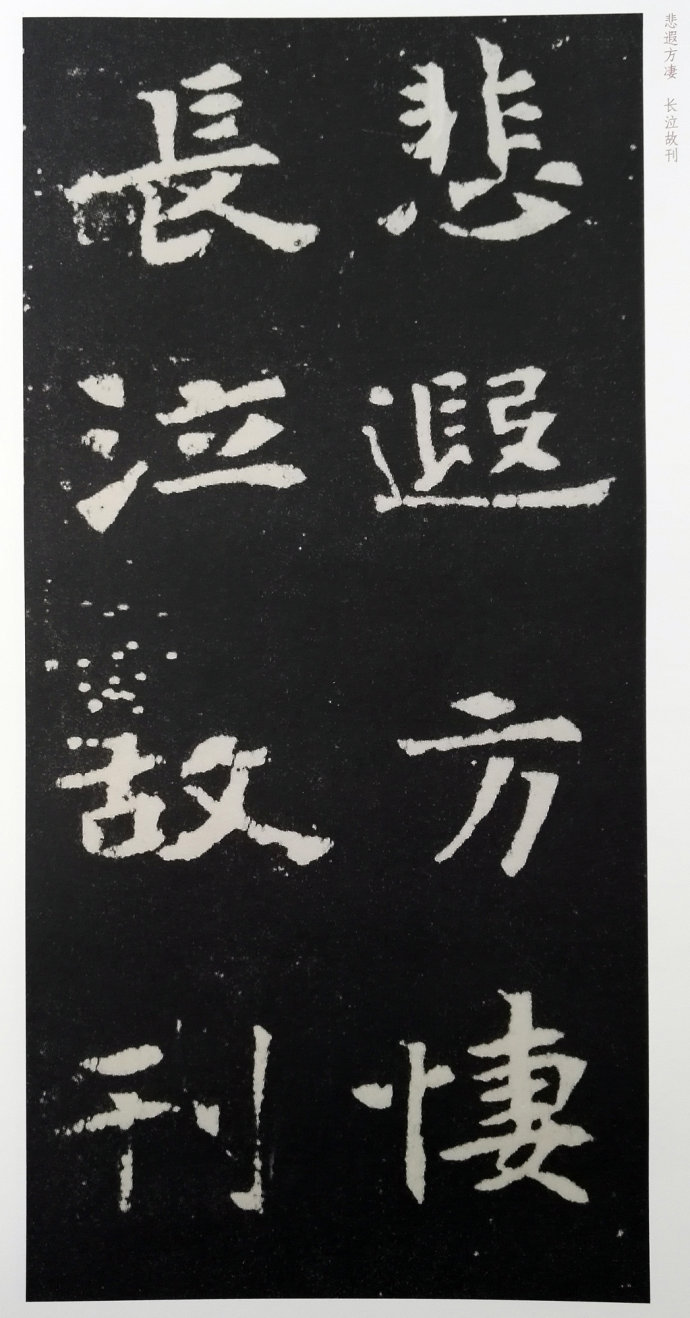 悲遐方凄 长泣故刊
悲遐方悽
長泣故刊